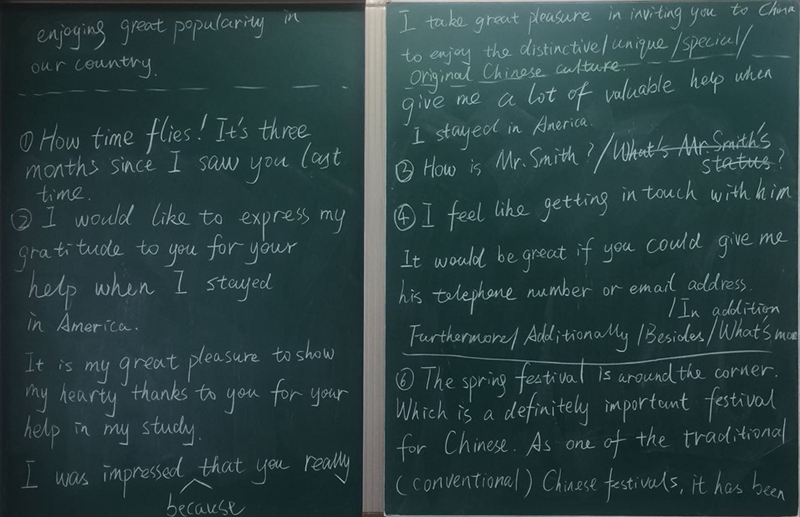 enjoying great popularity in
our country.
① How time flies! It's three
months since I saw you last
time.
② I would like to express my
gratitude to you for your
help when I stayed
in America.
It is my great pleasure to show
my hearty thanks to you for your
help in my study.
I was impressed that you really
because
I take great pleasure in inviting you to China
to enjoy the distinctive/unique/special/
Original Chinese culture.
give me a lot of valuable help when
I stayed in America.
③ How is Mr. Smith? / What's Mr Smith's
status?
④ I feel like getting in touch with him
It would be great if you could give me
his telephone number or email address.
/In addition
Furthermore/Additionally/Besides/What's more
⑥ The spring festival is around the corner.
Which is a definitely important festival
for Chinese. As one of the traditional
(conventional) Chinese festivals, it has been